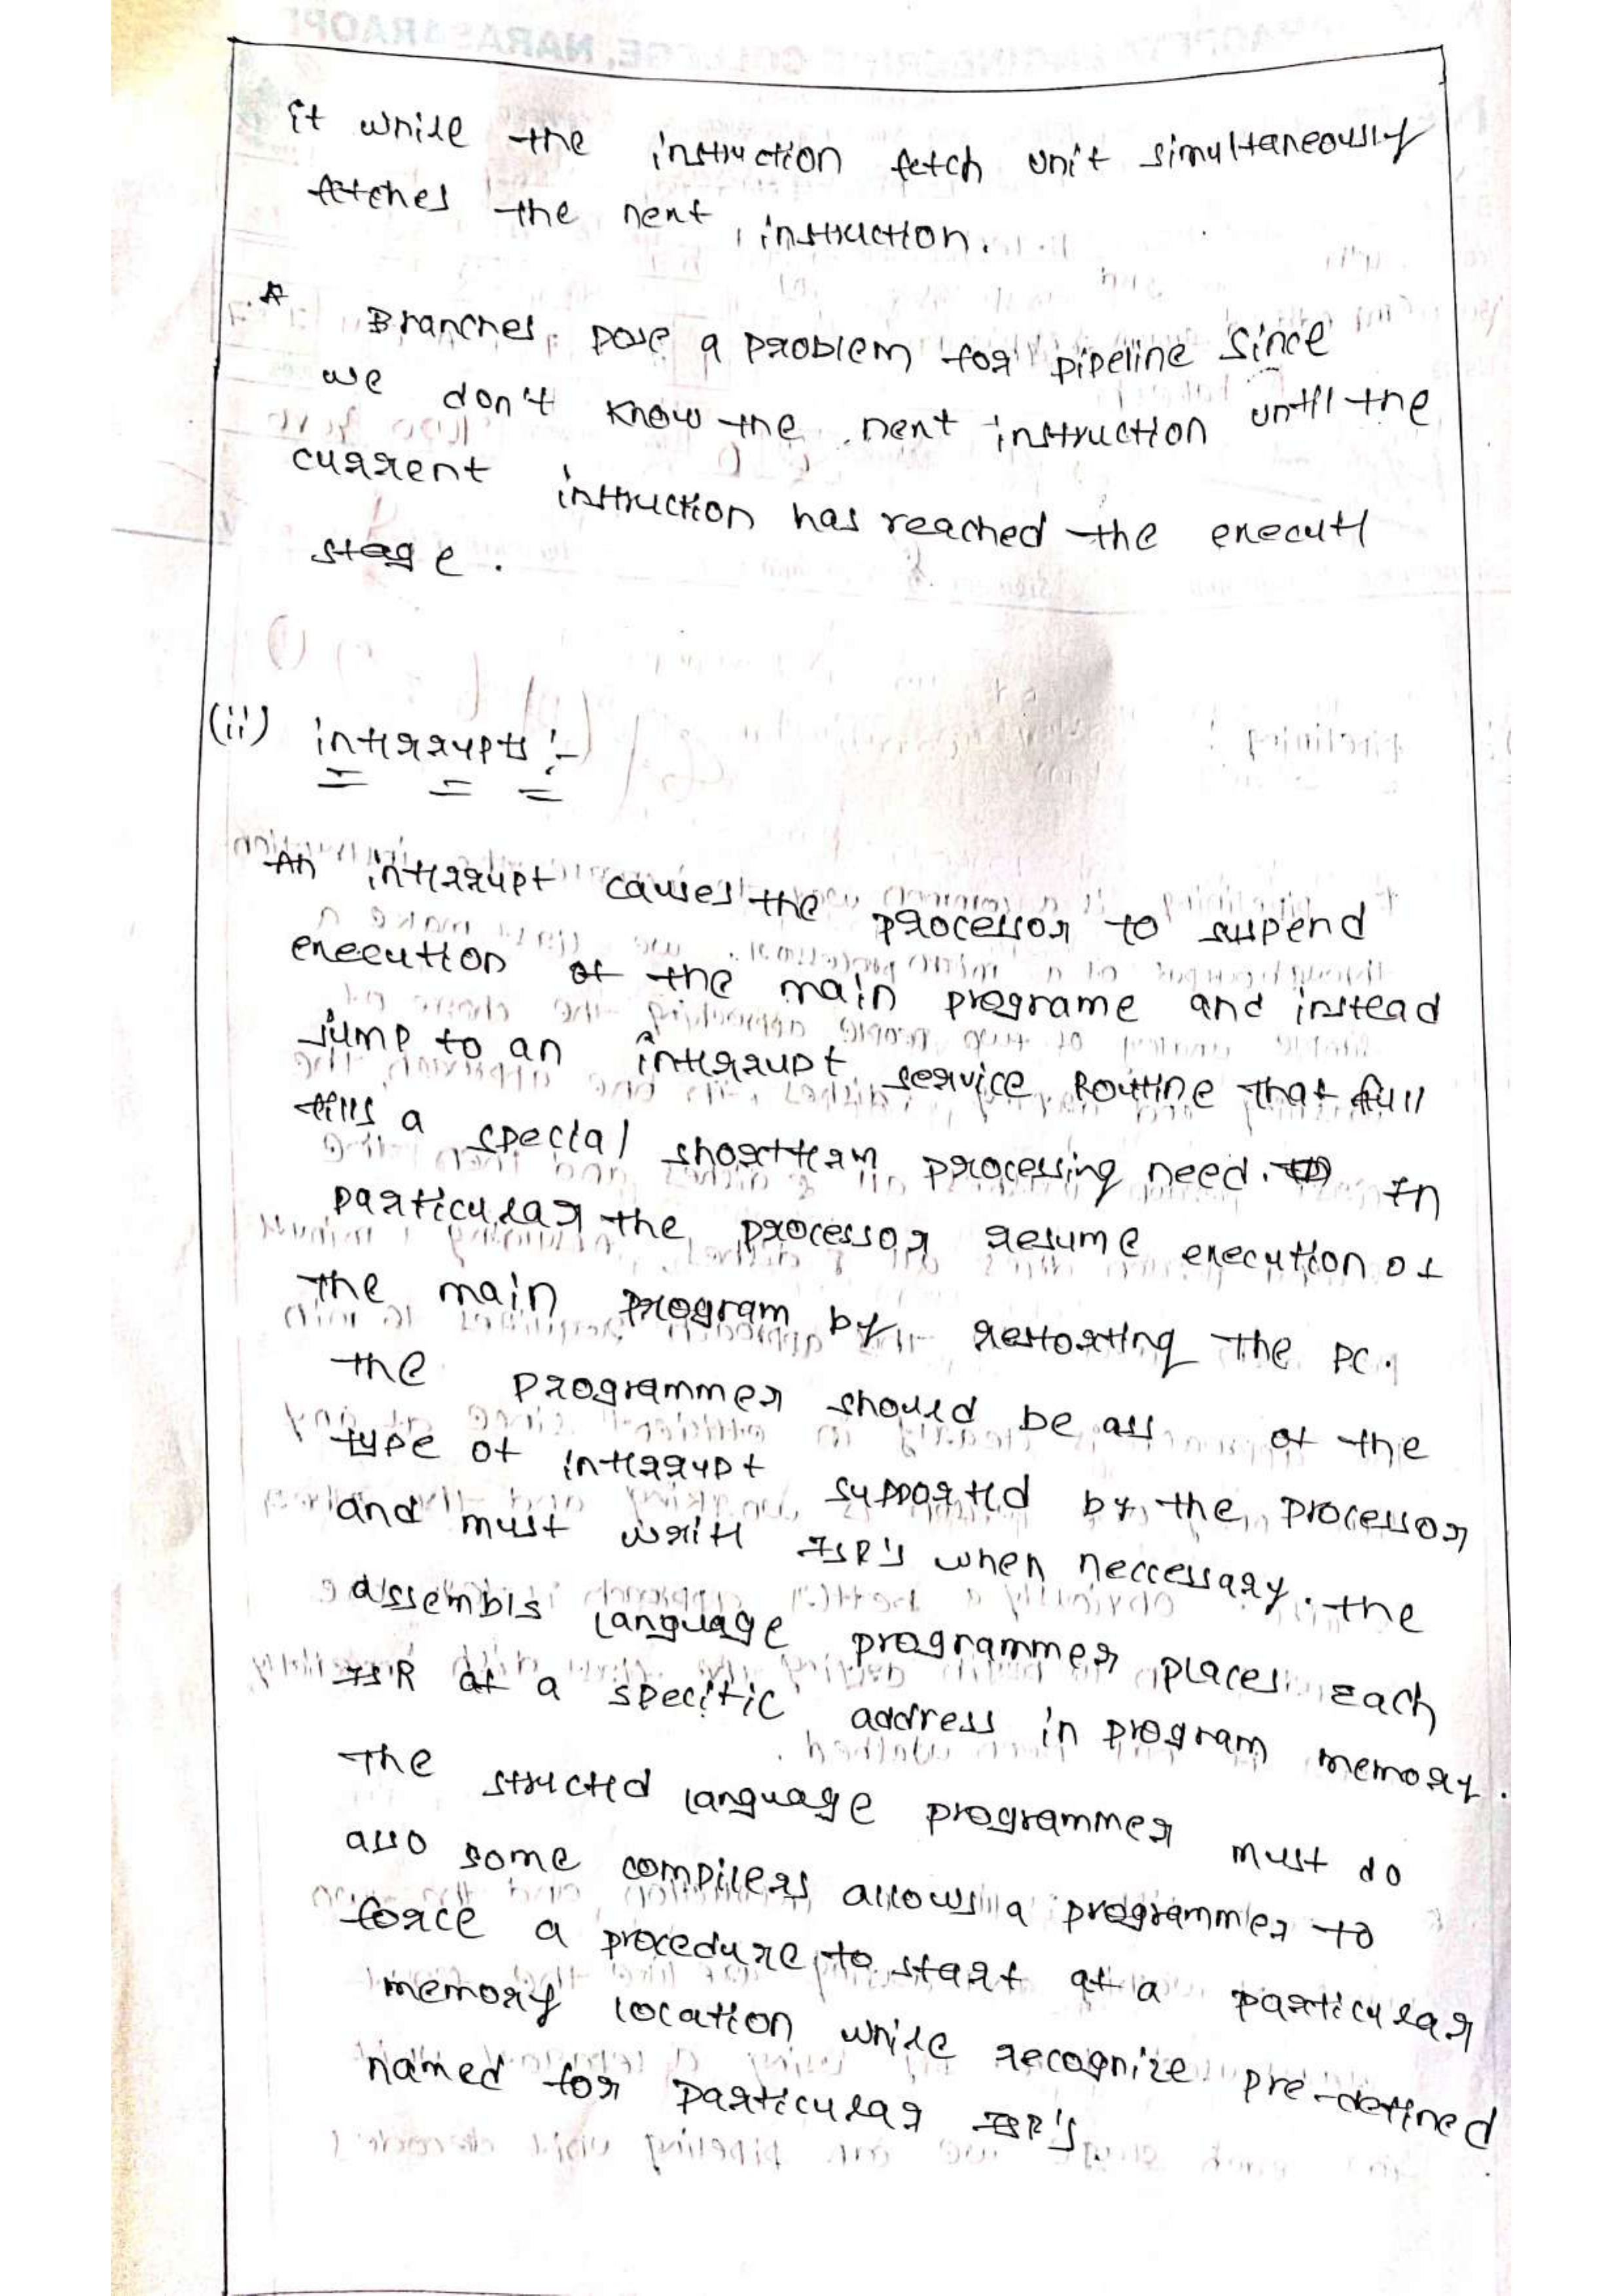 it while the instruction fetch unit simultaneously
fetches the next instruction.
* Branches pose a problem for pipeline since
we don't know the next instruction until the
current instruction has reached the execute
stage.
(ii) interrupts :-
An interrupt causes the processor to suspend
execution of the main programe and instead
jump to an interrupt service Routine that full
fills a special shortterm processing need. In
particular the processor resume execution of
the main program by restoring the PC.
the programmer should be ass of the
type of interrupt supported by the processor
and must write ISR's when neccessary. the
assembls language programmer places Each
ISR at a specific address in program memory.
The structed language programmer must do
also some compilers allows a programmer to
force a procedure to start at a particular
memory location while recognize pre-defined
named for particular ISR's